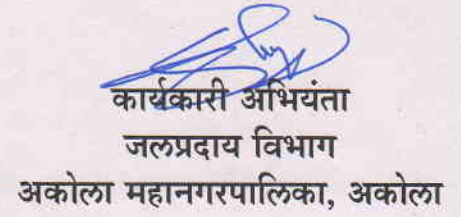 कार्यकारी अभियंता
जलप्रदाय विभाग
अकोला महानगरपालिका, अकोला